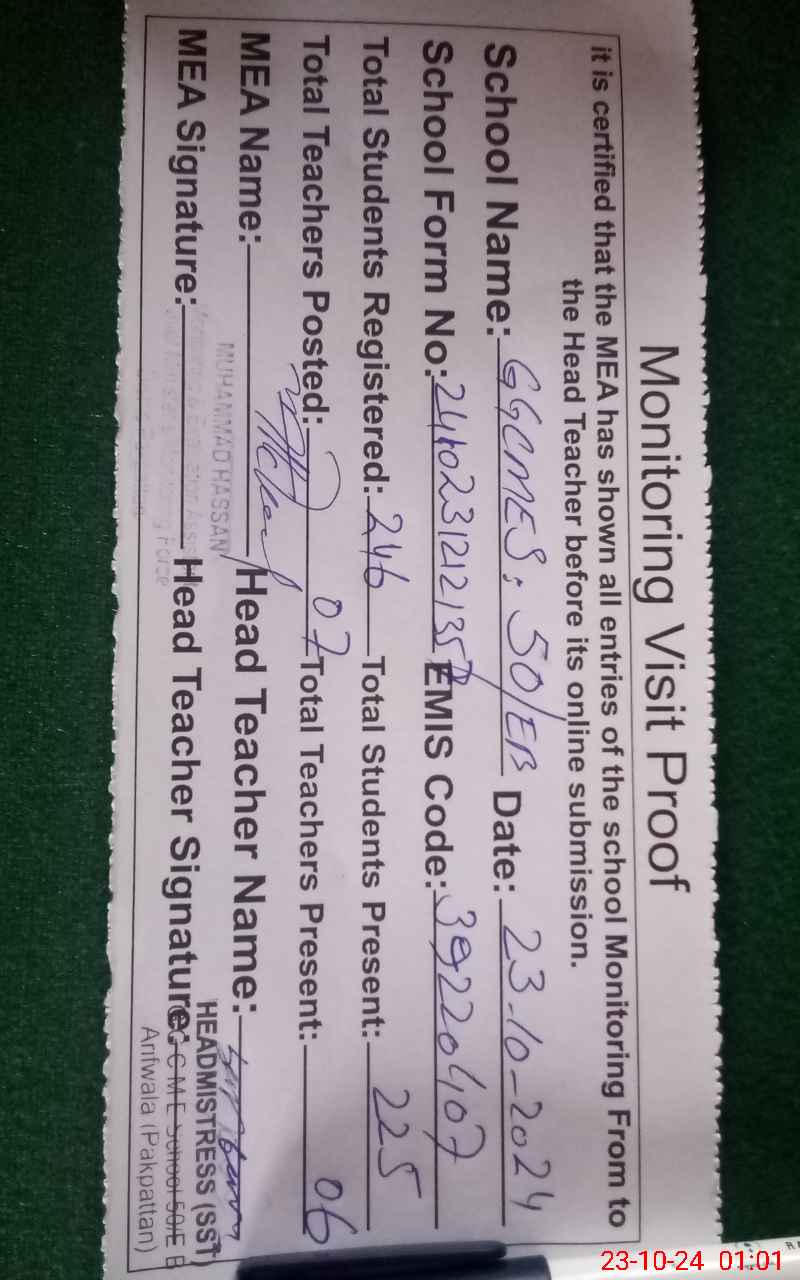 Monitoring Visit Proof
it is certified that the MEA has shown all entries of the school Monitoring From to
the Head Teacher before its online submission.
School Name: GGCMES: 50/EB Date: 23-10-2024
School Form No: EMIS Code: 39220407
Total Students Registered: 246 Total Students Present: 225
Total Teachers Posted: 07 Total Teachers Present: 06
MEA Name: Head Teacher Name:
MUHAMMAD HASSAN
MEA Signature: Head Teacher Signature:
HEADMISTRESS (SST)
G G C M E School 50/E B
Arifwala (Pakpattan)
23-10-24 01:01